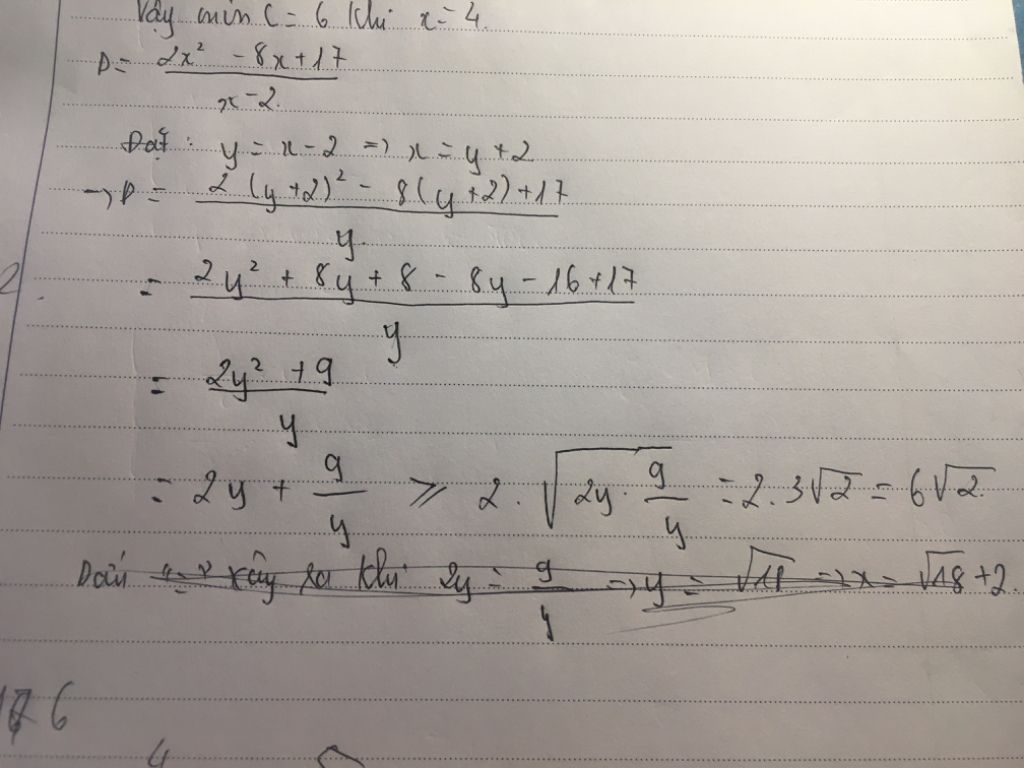 Vậy min C = 6 khi x = 4.
D = \frac{2x² - 8x + 17}{x - 2}
Đặt : y = x - 2 => x = y + 2
→ D = \frac{2(y+2)² - 8(y+2) + 17}{y}
2. = \frac{2y² + 8y + 8 - 8y - 16 + 17}{y}
= \frac{2y² + 9}{y}
= 2y + \frac{9}{y} ≥ 2 . \sqrt{2y . \frac{9}{y}} = 2 . 3√2 = 6√2.
Dấu "=" xảy ra khi 2y = \frac{9}{y} → y = √18 => x = √18 + 2.
6
4